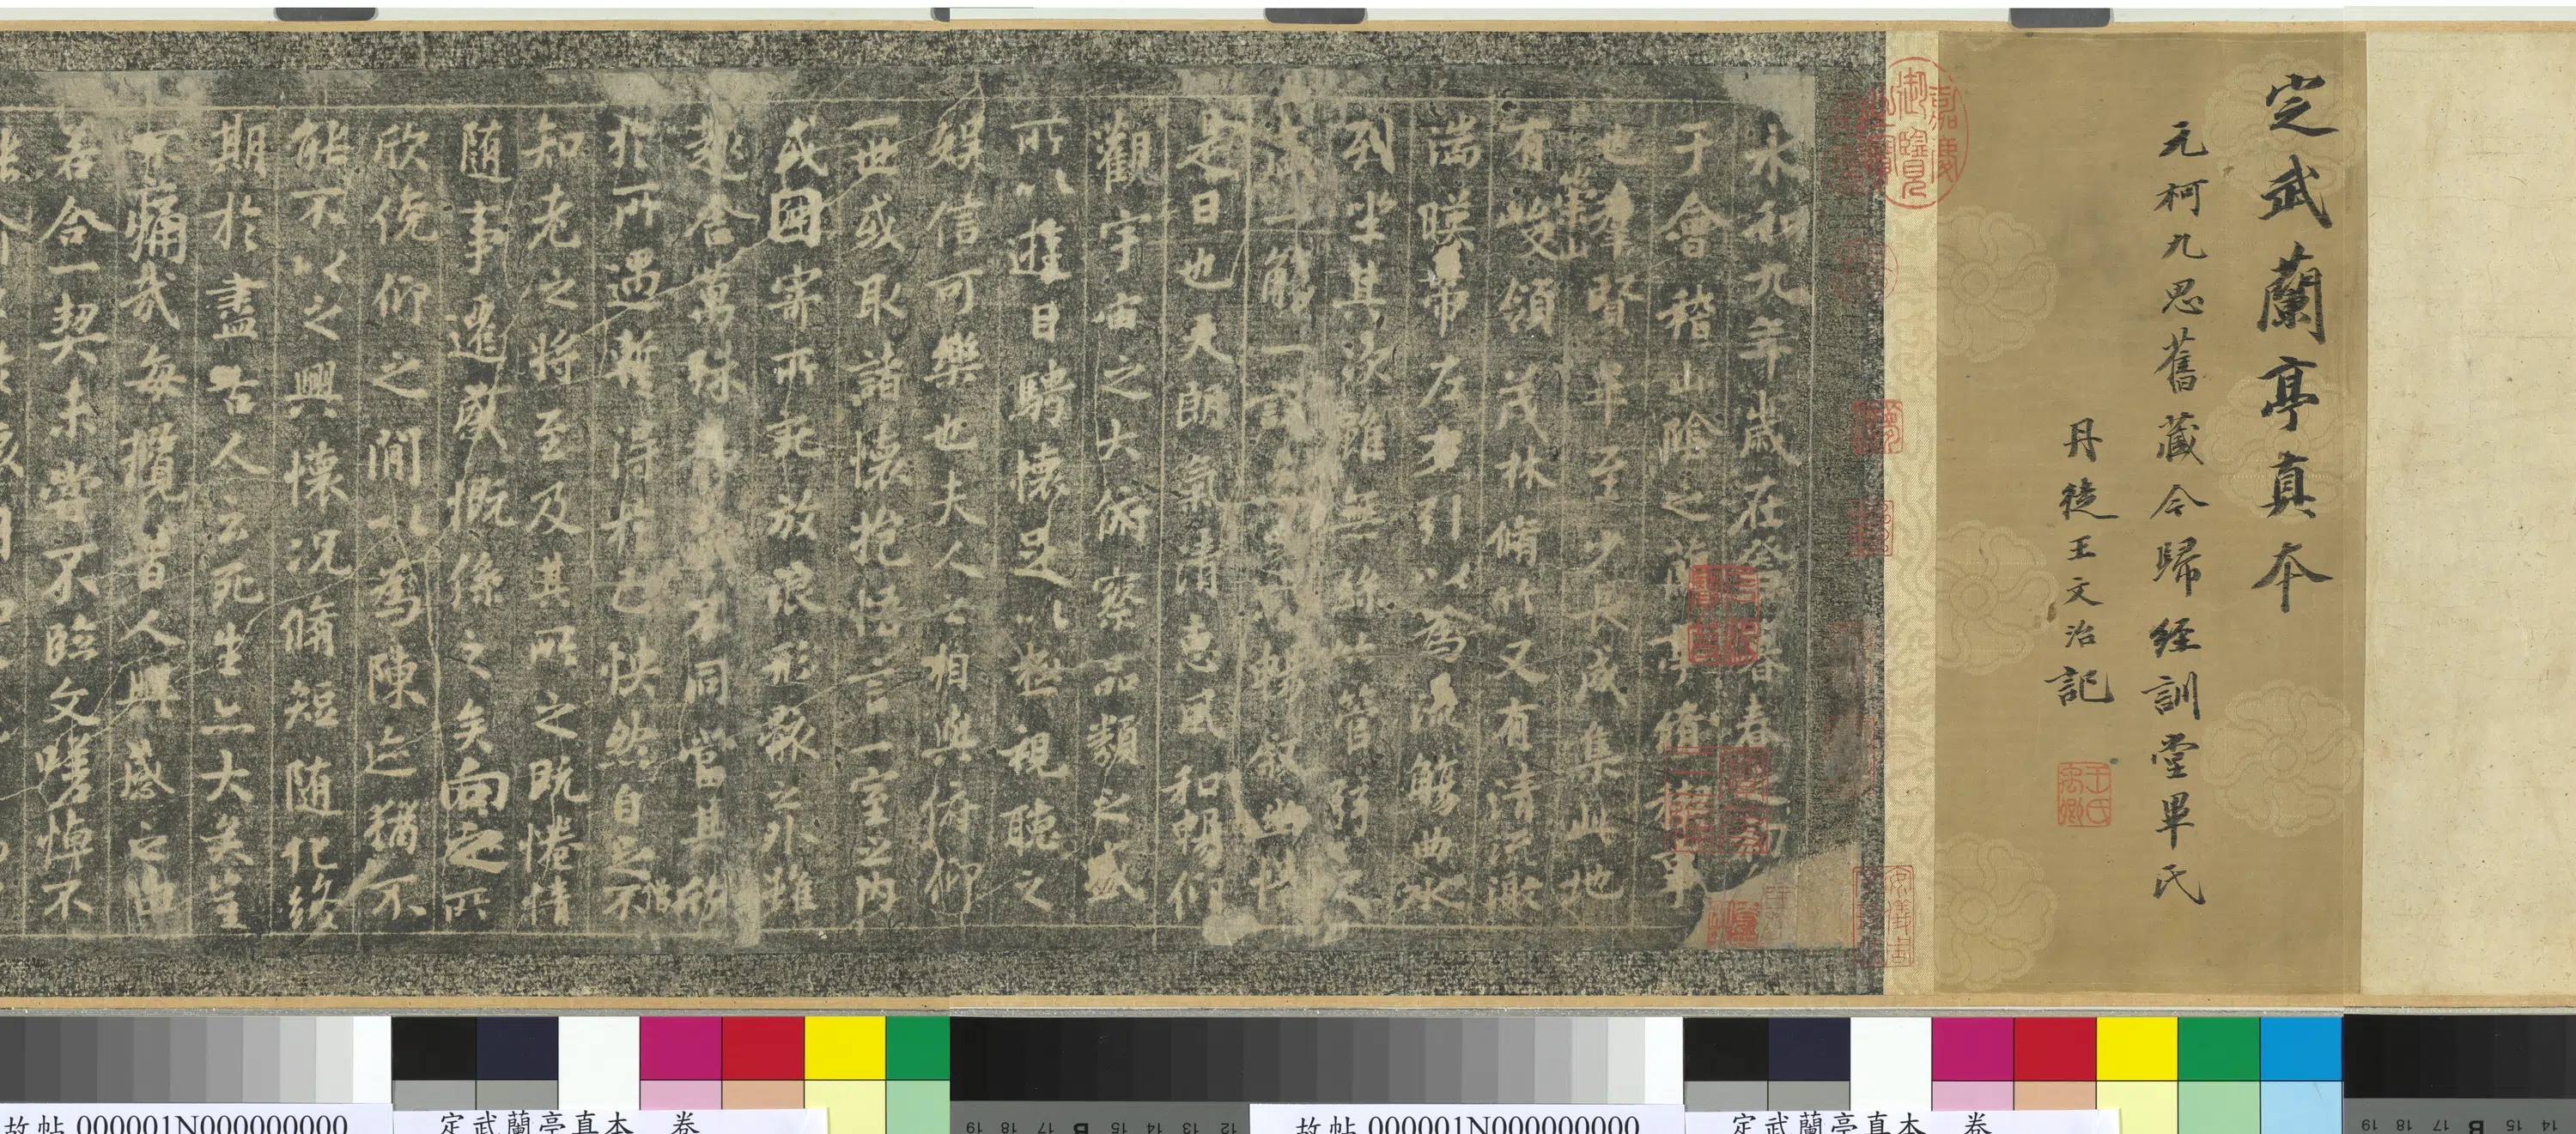 定武蘭亭真本
元柯九思舊藏今歸經訓堂畢氏
丹徒王文治記
王氏禹卿
嘉慶御覽之寶
永和九年歲在癸丑暮春之初會
于會稽山陰之蘭亭脩禊事
也羣賢畢至少長咸集此地
有崇山峻領茂林脩竹又有清流激
湍暎帶左右引以為流觴曲水
列坐其次雖無絲竹管弦之
盛一觴一詠亦足以暢叙幽情
是日也天朗氣清惠風和暢仰
觀宇宙之大俯察品類之盛
所以遊目騁懷足以極視聽之
娛信可樂也夫人之相與俯仰
一世或取諸懷抱悟言一室之內
或因寄所託放浪形骸之外雖
趣舍萬殊靜躁不同當其欣
於所遇暫得於己怏然自足不
知老之將至及其所之既惓情
隨事遷感慨係之矣向之所
欣俛仰之閒以為陳迹猶不
能不以之興懷況脩短隨化終
期於盡古人云死生亦大矣豈
不痛哉每攬昔人興感之由
若合一契未嘗不臨文嗟悼不
故帖 000001N000000000
定武蘭亭真本 卷
故帖 000001N000000000
定武蘭亭真本 卷
19 18 17 B 15 14 13 12
19 18 17 B 15 14